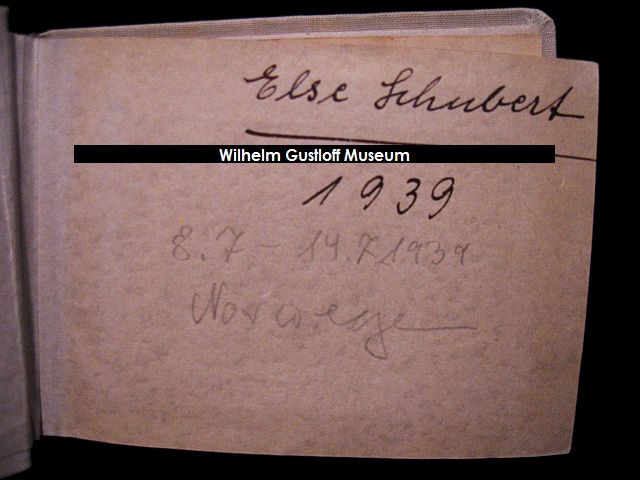 Else Schubert
Wilhelm Gustloff Museum
1939
8.7 - 14.7 1939
Norwegen